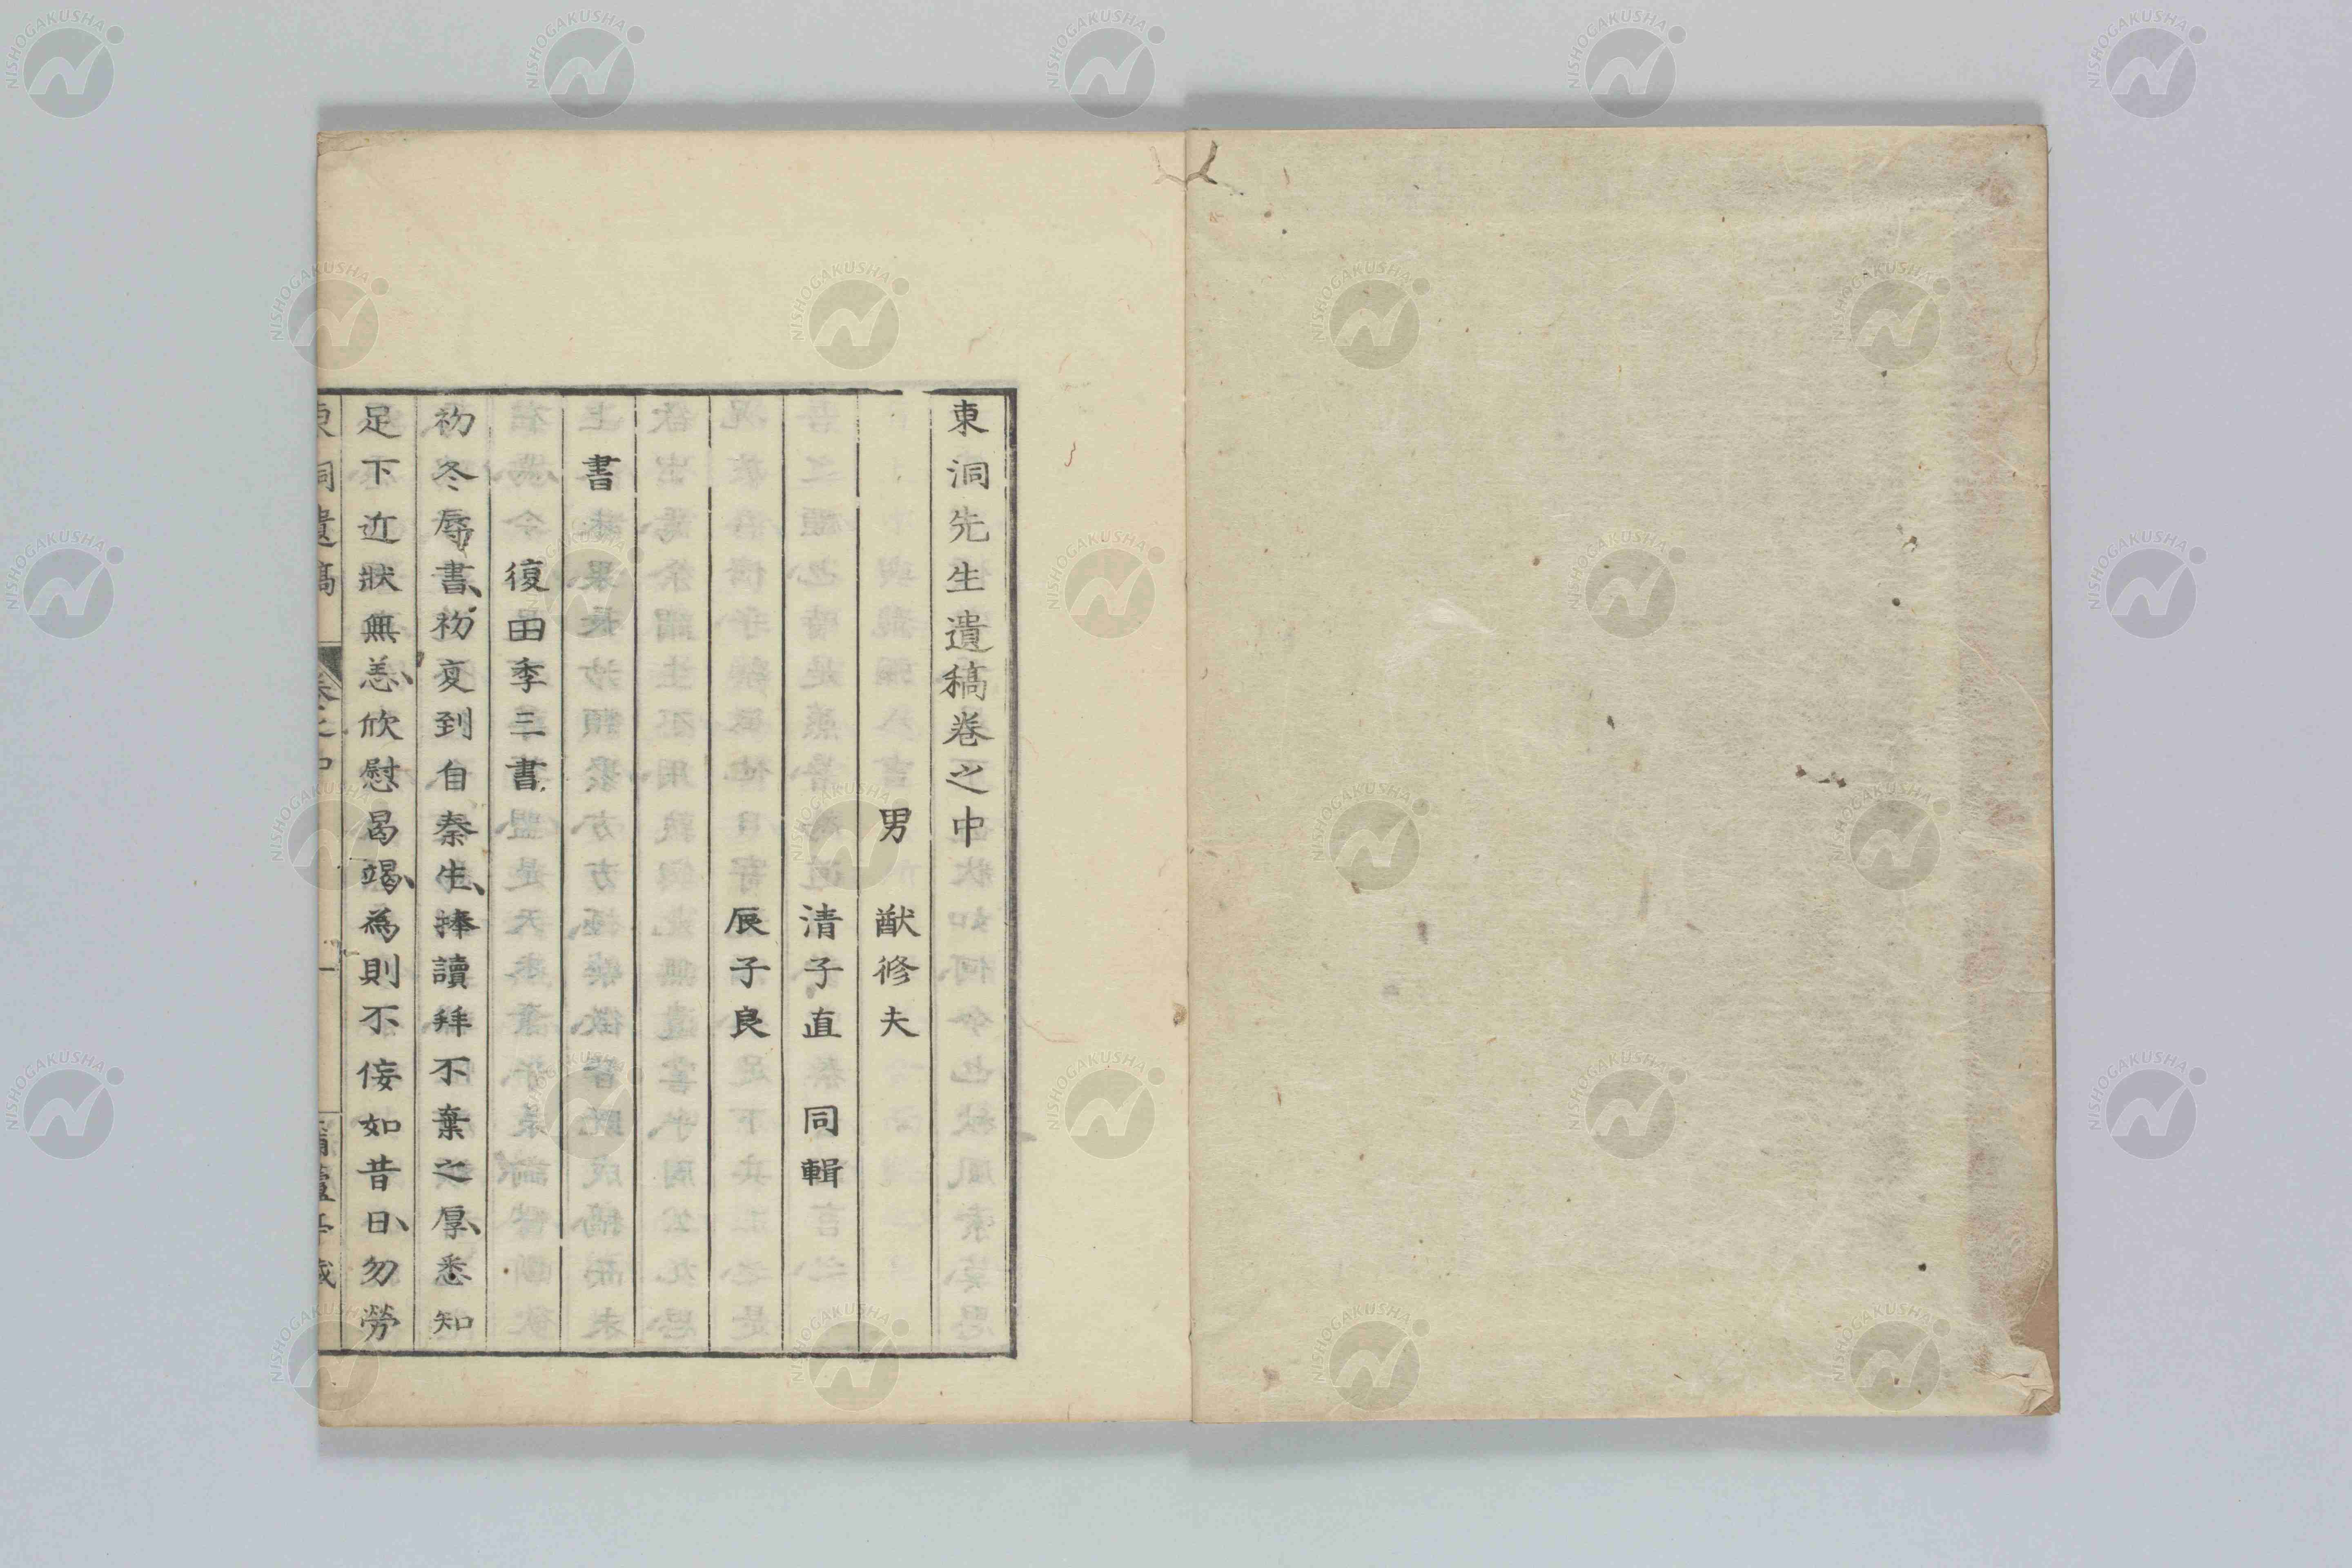 東洞先生遺稿卷之中
男　猷修夫
清子直　同輯
辰子良
書
復田季三書
初冬辱書、初夏到自秦生、捧讀拜不棄之厚、悉知
足下近狀無恙、欣慰曷竭、為則不佞如昔日、勿勞
東洞遺稿　卷之中　一
NISHOGAKUSHA